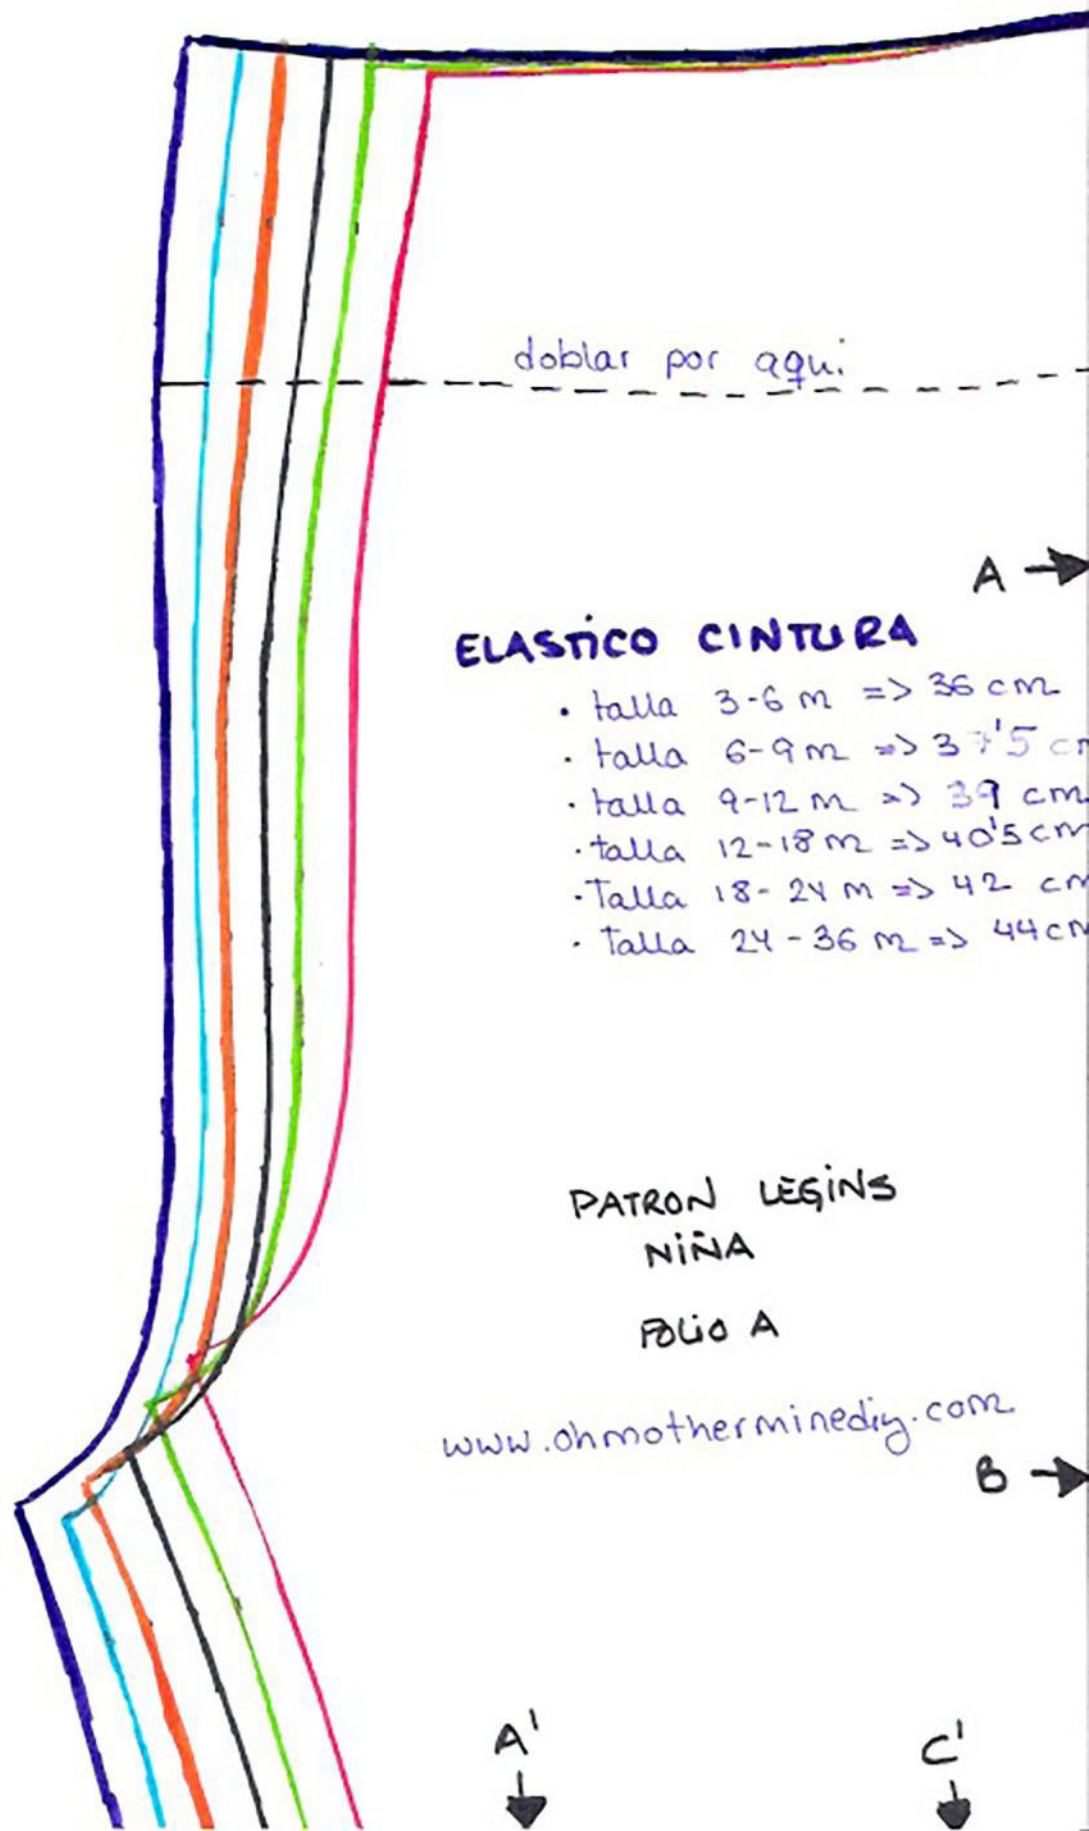 doblar por aqui
A
ELASTICO CINTURA
· talla 3-6 m => 36 cm
· talla 6-9 m => 37'5 cm
· talla 9-12 m => 39 cm
· talla 12-18 m => 40'5 cm
· Talla 18-24 m => 42 cm
· Talla 24-36 m => 44 cm
PATRON LEGINS
NIÑA
FOLIO A
www.ohmotherminediy.com
B
A' C'